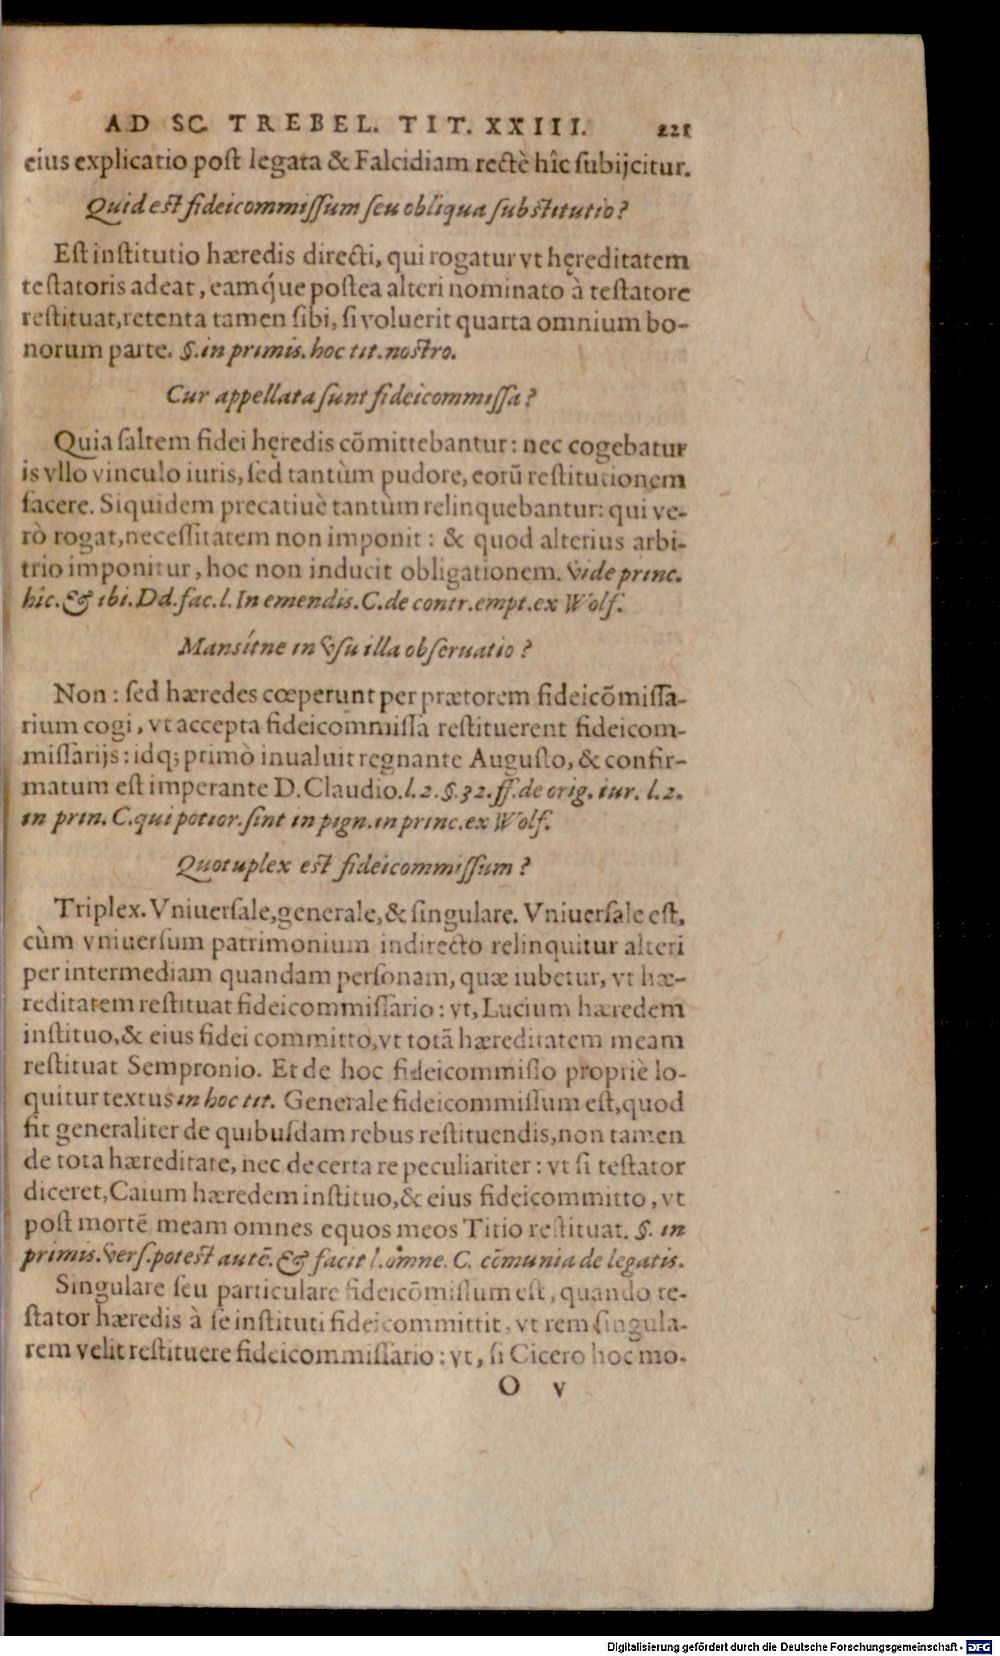 AD SC. TREBEL. TIT. XXIII. 221
eius explicatio post legata & Falcidiam rectè hîc subijcitur.
Quid est fideicommissum seu obliqua substitutio?
Est institutio hæredis directi, qui rogatur vt hęreditatem
testatoris adeat, eamq́ue postea alteri nominato à testatore
restituat, retenta tamen sibi, si voluerit quarta omnium bo-
norum parte. §. in primis. hoc tit. nostro.
Cur appellata sunt fideicommissa?
Quia saltem fidei hęredis cõmittebantur: nec cogebatur
is vllo vinculo iuris, sed tantùm pudore, eorũ restitutionem
facere. Siquidem precatiuè tantùm relinquebantur: qui ve-
rò rogat, necessitatem non imponit: & quod alterius arbi-
trio imponitur, hoc non inducit obligationem. Vide princ.
hîc. & ibi. Dd. fac. l. In emendis. C. de contr. empt. ex Wolf.
Mansítne in vsu illa obseruatio?
Non: sed hæredes cœperunt per prætorem fideicõmissa-
rium cogi, vt accepta fideicommissa restituerent fideicom-
missarijs: idq; primò inualuit regnante Augusto, & confir-
matum est imperante D. Claudio. l. 2. §. 32. ff. de orig. iur. l. 2.
in prin. C. qui potior. sint in pign. in princ. ex Wolf.
Quotuplex est fideicommissum?
Triplex. Vniuersale, generale, & singulare. Vniuersale est,
cùm vniuersum patrimonium indirecto relinquitur alteri
per intermediam quandam personam, quæ iubetur, vt hæ-
reditatem restituat fideicommissario: vt, Lucium hæredem
instituo, & eius fidei committo, vt totã hæreditatem meam
restituat Sempronio. Et de hoc fideicommisso propriè lo-
quitur textus in hoc tit. Generale fideicommissum est, quod
fit generaliter de quibusdam rebus restituendis, non tamen
de tota hæreditate, nec de certa re peculiariter: vt si testator
diceret, Caium hæredem instituo, & eius fideicommitto, vt
post mortē meam omnes equos meos Titio restituat. §. in
primis. vers. potest autē. & facit l. omne. C. cõmunia de legatis.
Singulare seu particulare fideicõmissum est, quando te-
stator hæredis à se instituti fidei committit, vt rem singula-
rem velit restituere fideicommissario: vt, si Cicero hoc mo-
O v
Digitalisierung gefördert durch die Deutsche Forschungsgemeinschaft - DFG